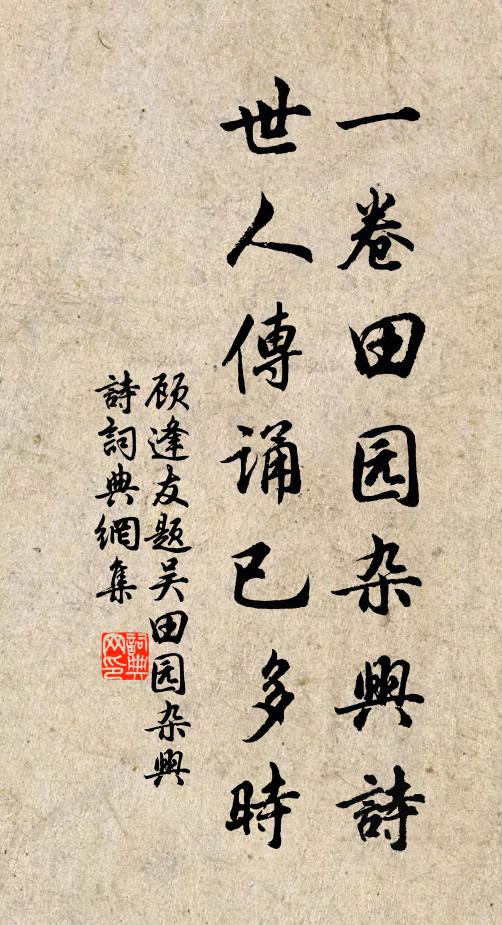 一卷田园杂興詩
世人傳诵已多時
顾逢友题吴田园杂興
詩詞典網集
詞典網印